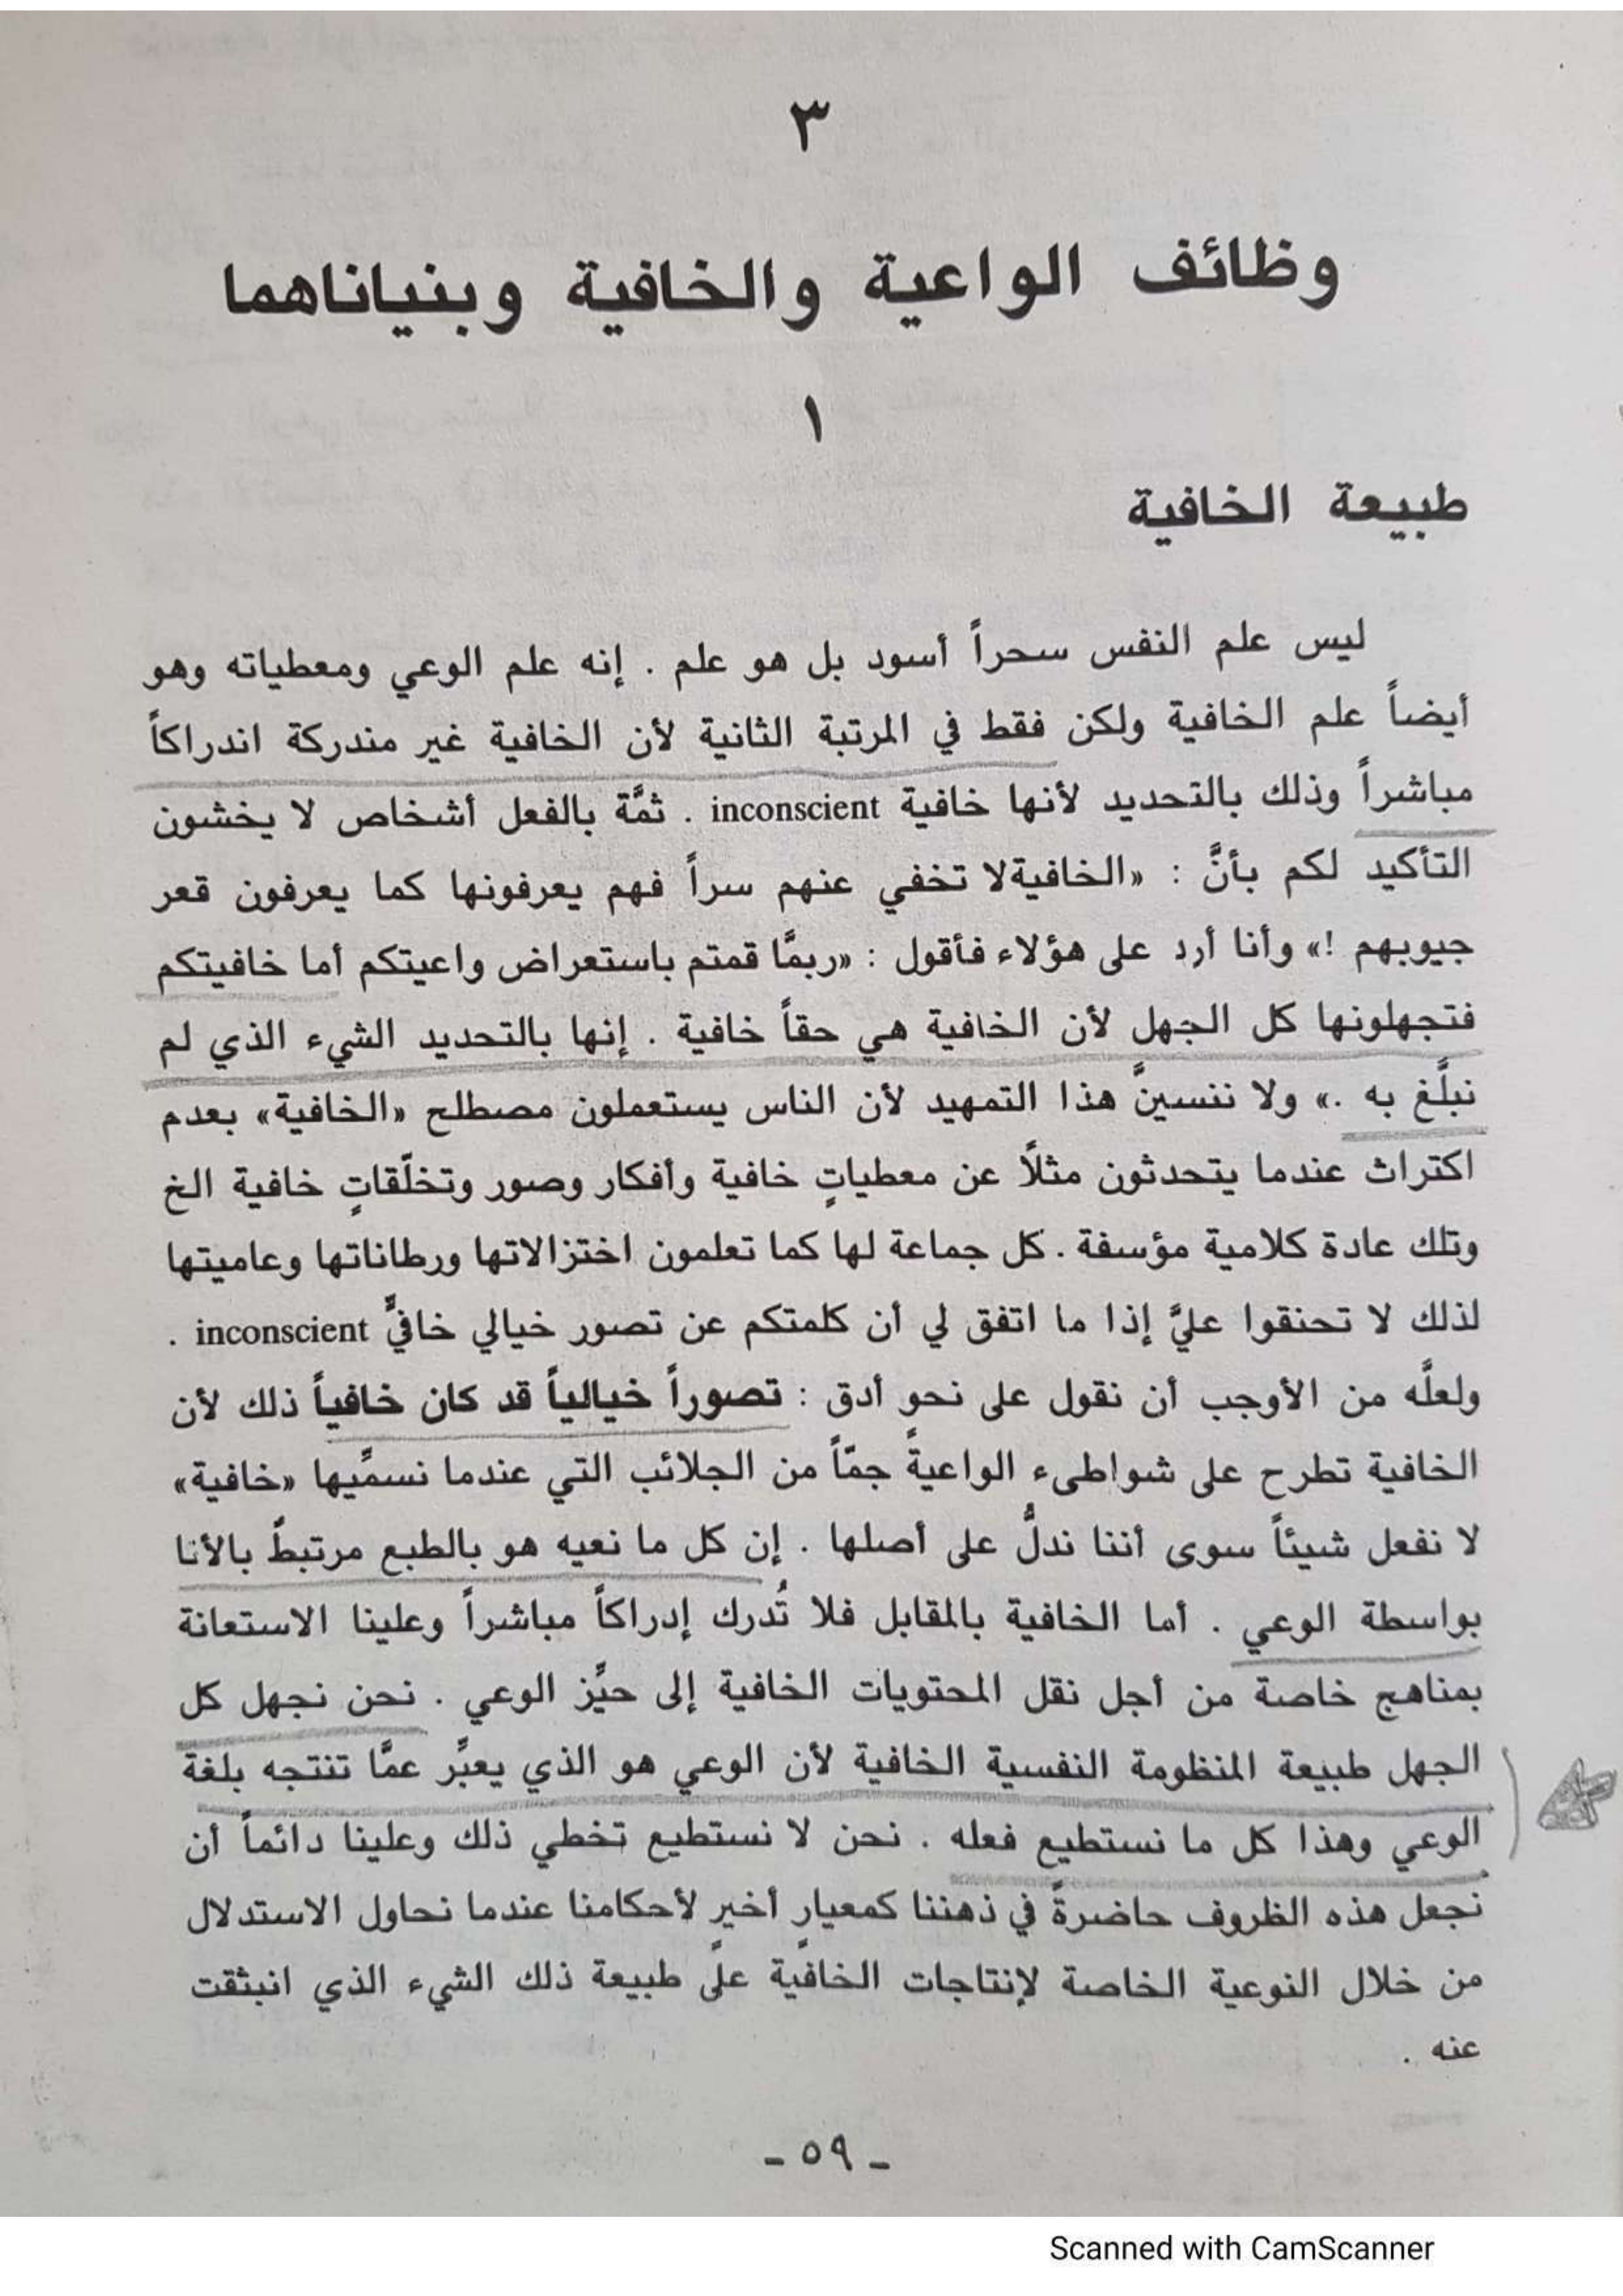 ٣
وظائف الواعية والخافية وبنياناهما
١
طبيعة الخافية
ليس علم النفس سحراً أسود بل هو علم . إنه علم الوعي ومعطياته وهو
أيضاً علم الخافية ولكن فقط في المرتبة الثانية لأن الخافية غير مندركة اندراكاً
مباشراً وذلك بالتحديد لأنها خافية inconscient . ثمَّة بالفعل أشخاص لا يخشون
التأكيد لكم بأنَّ : «الخافيةلا تخفي عنهم سراً فهم يعرفونها كما يعرفون قعر
جيوبهم !» وأنا أرد على هؤلاء فأقول : «ربمَّا قمتم باستعراض واعيتكم أما خافيتكم
فتجهلونها كل الجهل لأن الخافية هي حقاً خافية . إنها بالتحديد الشيء الذي لم
نبلَّغ به .» ولا ننسينَّ هذا التمهيد لأن الناس يستعملون مصطلح «الخافية» بعدم
اكتراث عندما يتحدثون مثلاً عن معطياتٍ خافية وأفكار وصور وتخلّقاتٍ خافية الخ
وتلك عادة كلامية مؤسفة . كل جماعة لها كما تعلمون اختزالاتها ورطاناتها وعاميتها
لذلك لا تحنقوا عليَّ إذا ما اتفق لي أن كلمتكم عن تصور خيالي خافيٍّ inconscient .
ولعلَّه من الأوجب أن نقول على نحوٍ أدق : تصوراً خيالياً قد كان خافياً ذلك لأن
الخافية تطرح على شواطىء الواعية جمّاً من الجلائب التي عندما نسمِّيها «خافية»
لا نفعل شيئاً سوى أننا ندلُّ على أصلها . إن كل ما نعيه هو بالطبع مرتبطٌ بالأنا
بواسطة الوعي . أما الخافية بالمقابل فلا تُدرك إدراكاً مباشراً وعلينا الاستعانة
بمناهج خاصة من أجل نقل المحتويات الخافية إلى حيِّز الوعي . نحن نجهل كل
الجهل طبيعة المنظومة النفسية الخافية لأن الوعي هو الذي يعبِّر عمَّا تنتجه بلغة
الوعي وهذا كل ما نستطيع فعله . نحن لا نستطيع تخطي ذلك وعلينا دائماً أن
نجعل هذه الظروف حاضرةً في ذهننا كمعيارٍ أخيرٍ لأحكامنا عندما نحاول الاستدلال
من خلال النوعية الخاصة لإنتاجات الخافية على طبيعة ذلك الشيء الذي انبثقت
عنه .
- ٥٩ -
Scanned with CamScanner